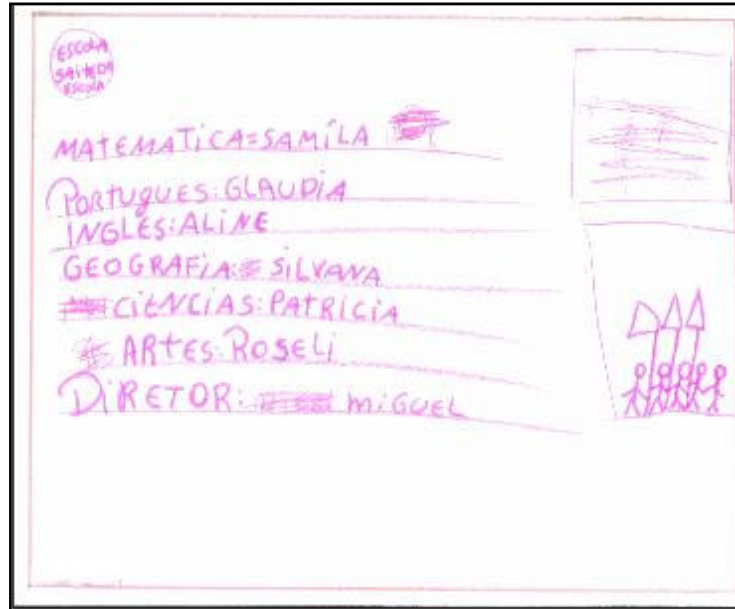 ESCOLA
SAIDA
ESCOLA
MATEMATICA=SAMÍLA
PORTUGUES:GLAUDIA
INGLES:ALINE
GEOGRAFIA: SILVANA
CIENCIAS:PATRICIA
ARTES:ROSELI
DIRETOR: MIGUEL